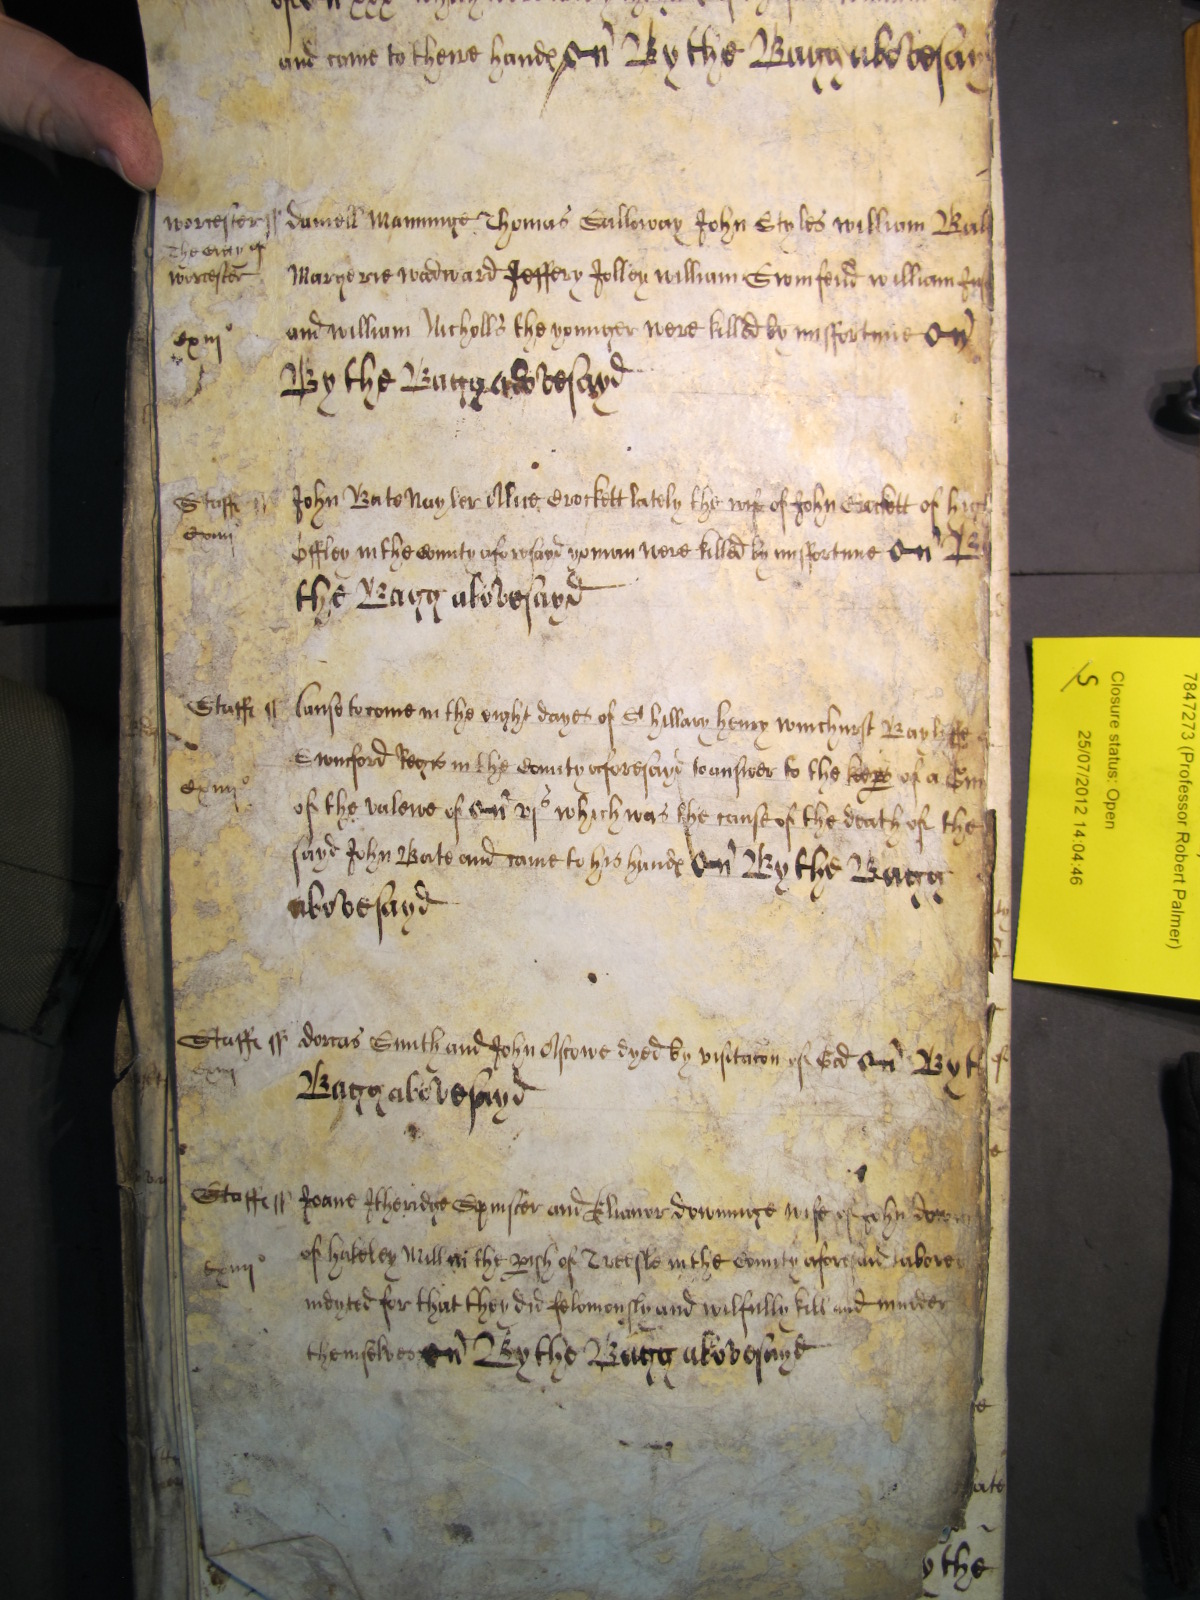 and came to there hands On By the Bagg abovesay
Worcester ss Daniell Manninge Thomas Galloway John Styles William
The City of
Worcester Margerie Wodward Jeffery Jolley William Swinfeild William
and William Nicholls the younger were killed by missfortune On
By the Bagg abovesayd
Staff ss John Bate Nayler Alice Crockett lately the wife of John Crockett of high
Offley in the County aforesayd yoman were killed by missfortune On By
the Bagg abovesayd
Staff ss Cause to come in the eight dayes of St hillary henry Winchurst Bayliffe
Swinford Regis in the County aforesayd to answer to the of a
of the valewe of vjs which was the cause of the death of the
sayd John Bate and came to his hands On By the Bagg
abovesayd
Staff ss Dorcas Smith and John Ascowe dyed by visitacon of God On By th
Bagg abovesayd
Staff ss Joane Itheridge Spinster and Elianor Downinge wife of John
of hateley Mill in the pish of Treesle in the County aforesaid labore
indyted for that they did feloniously and wilfully kill and murder
themselves On By the Bagg abovesayd
y the
7847273 (Professor Robert Palmer)
Closure status: Open
25/07/2012 14:04:46